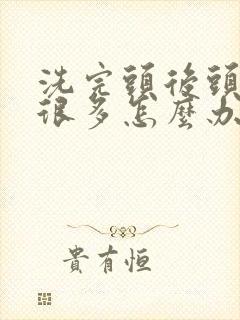 洗完頭後頭
很多怎麼办
貴有恒